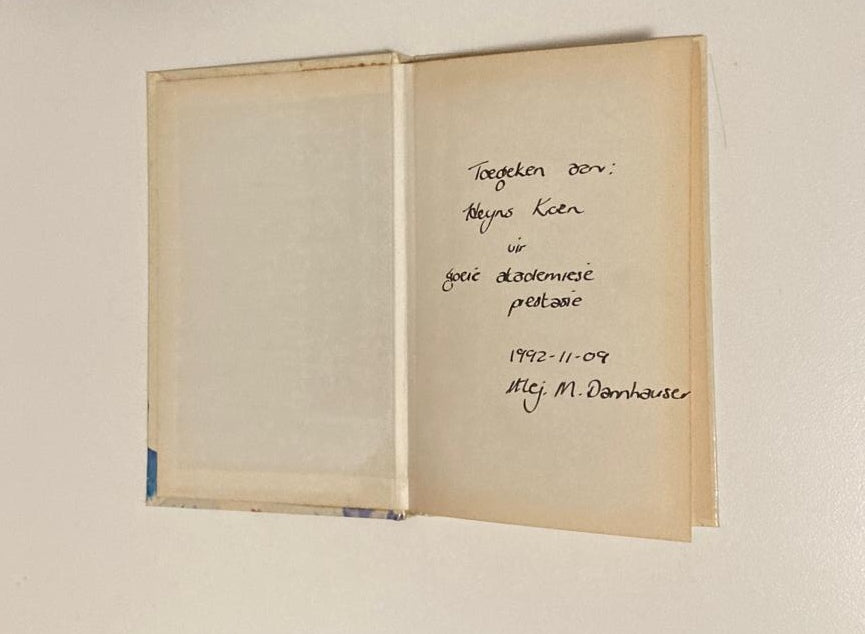 Toegeken aan:
Heyns Koen
vir
goeie akademiese
prestasie
1992-11-09
Mej. M. Dannhauser